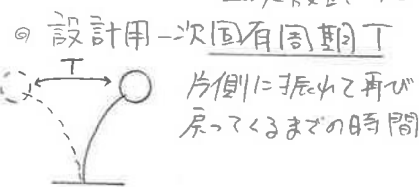 ◎ 設計用一次固有周期T
T
片側に振れて再び
戻ってくるまでの時間